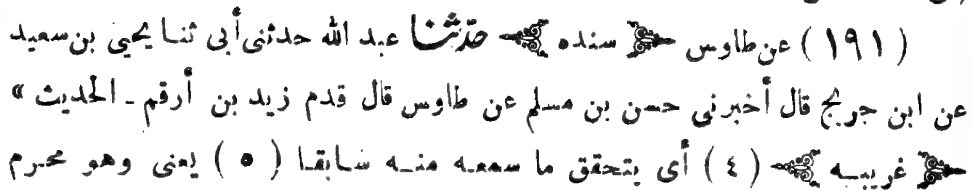 ( ١٩١ ) عن طاوس ﴿ سنده ﴾ حدثنا عبد الله حدثنى أبى ثنا يحيى بن سعيد
عن ابن جريج قال أخبرنى حسن بن مسلم عن طاوس قال قدم زيد بن أرقم ـ الحديث »
﴿ غريبه ﴾ ( ٤ ) أى يتحقق ما سمعه منه سابقا ( ٥ ) يعنى وهو محرم